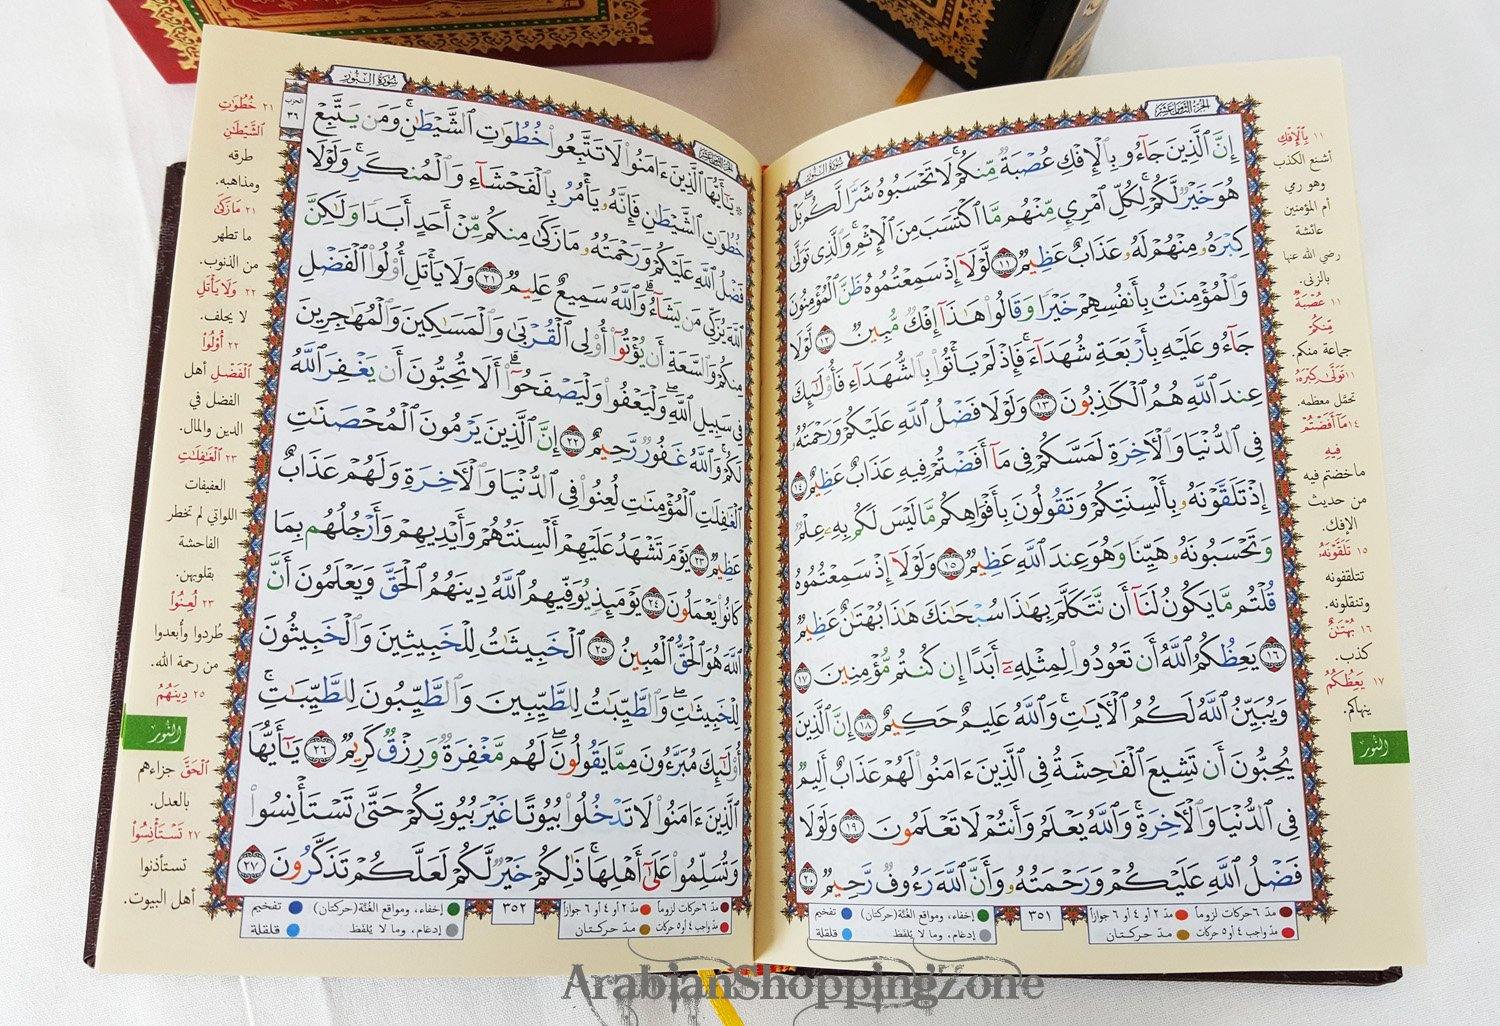 الجزء الثامن عشر
سورة النور
إِنَّ ٱلَّذِينَ جَآءُو بِٱلْإِفْكِ عُصْبَةٌ مِّنكُمْ ۚ لَا تَحْسَبُوهُ شَرًّا لَّكُم ۖ بَلْ
هُوَ خَيْرٌ لَّكُمْ ۚ لِكُلِّ ٱمْرِئٍ مِّنْهُم مَّا ٱكْتَسَبَ مِنَ ٱلْإِثْمِ ۚ وَٱلَّذِى تَوَلَّىٰ
كِبْرَهُۥ مِنْهُمْ لَهُۥ عَذَابٌ عَظِيمٌ ١١ لَّوْلَآ إِذْ سَمِعْتُمُوهُ ظَنَّ ٱلْمُؤْمِنُونَ
وَٱلْمُؤْمِنَٰتُ بِأَنفُسِهِمْ خَيْرًا وَقَالُوا۟ هَٰذَآ إِفْكٌ مُّبِينٌ ١٢ لَّوْلَا
جَآءُو عَلَيْهِ بِأَرْبَعَةِ شُهَدَآءَ ۚ فَإِذْ لَمْ يَأْتُوا۟ بِٱلشُّهَدَآءِ فَأُو۟لَٰٓئِكَ
عِندَ ٱللَّهِ هُمُ ٱلْكَٰذِبُونَ ١٣ وَلَوْلَا فَضْلُ ٱللَّهِ عَلَيْكُمْ وَرَحْمَتُهُۥ
فِى ٱلدُّنْيَا وَٱلْءَاخِرَةِ لَمَسَّكُمْ فِى مَآ أَفَضْتُمْ فِيهِ عَذَابٌ عَظِيمٌ ١٤
إِذْ تَلَقَّوْنَهُۥ بِأَلْسِنَتِكُمْ وَتَقُولُونَ بِأَفْوَاهِكُم مَّا لَيْسَ لَكُم بِهِۦ عِلْمٌ
وَتَحْسَبُونَهُۥ هَيِّنًا وَهُوَ عِندَ ٱللَّهِ عَظِيمٌ ١٥ وَلَوْلَآ إِذْ سَمِعْتُمُوهُ
قُلْتُم مَّا يَكُونُ لَنَآ أَن نَّتَكَلَّمَ بِهَٰذَا سُبْحَٰنَكَ هَٰذَا بُهْتَٰنٌ عَظِيمٌ
١٦ يَعِظُكُمُ ٱللَّهُ أَن تَعُودُوا۟ لِمِثْلِهِۦٓ أَبَدًا إِن كُنتُم مُّؤْمِنِينَ ١٧
وَيُبَيِّنُ ٱللَّهُ لَكُمُ ٱلْءَايَٰتِ ۚ وَٱللَّهُ عَلِيمٌ حَكِيمٌ ١٨ إِنَّ ٱلَّذِينَ
يُحِبُّونَ أَن تَشِيعَ ٱلْفَٰحِشَةُ فِى ٱلَّذِينَ ءَامَنُوا۟ لَهُمْ عَذَابٌ أَلِيمٌ
فِى ٱلدُّنْيَا وَٱلْءَاخِرَةِ ۚ وَٱللَّهُ يَعْلَمُ وَأَنتُمْ لَا تَعْلَمُونَ ١٩ وَلَوْلَا
فَضْلُ ٱللَّهِ عَلَيْكُمْ وَرَحْمَتُهُۥ وَأَنَّ ٱللَّهَ رَءُوفٌ رَّحِيمٌ ٢٠
١١ بِٱلْإِفْكِ
أشنع الكذب
وهو رمي
أم المؤمنين
عائشة
رضي الله عنها
بالزنى.
١١ عُصْبَةٌ
مِّنكُمْ
جماعة منكم.
١١ تَوَلَّىٰ كِبْرَهُۥ
تحمّل معظمه.
١٤ مَآ أَفَضْتُمْ
فِيهِ
ما خضتم فيه
من حديث
الإفك.
١٥ تَلَقَّوْنَهُۥ
تتلقفونه
وتنقلونه.
١٦ بُهْتَٰنٌ
كذب.
١٧ يَعِظُكُمُ
ينهاكم.
النّور
مدّ ٦ حركات لزوماً مدّ ٢ أو ٤ أو ٦ جوازاً
مدّ واجب ٤ أو ٥ حركات مدّ حركتان
٣٥١
إخفاء، ومواقع الغُنَّة (حركتان) تفخيم
إدغام، وما لا يُلفَظ قلقلة
الجزء الثامن عشر
سورة النور
الحزب
٣٦
يَٰٓأَيُّهَا ٱلَّذِينَ ءَامَنُوا۟ لَا تَتَّبِعُوا۟ خُطُوَٰتِ ٱلشَّيْطَٰنِ ۚ وَمَن يَتَّبِعْ
خُطُوَٰتِ ٱلشَّيْطَٰنِ فَإِنَّهُۥ يَأْمُرُ بِٱلْفَحْشَآءِ وَٱلْمُنكَرِ ۚ وَلَوْلَا
فَضْلُ ٱللَّهِ عَلَيْكُمْ وَرَحْمَتُهُۥ مَا زَكَىٰ مِنكُم مِّنْ أَحَدٍ أَبَدًا وَلَٰكِنَّ
ٱللَّهَ يُزَكِّى مَن يَشَآءُ ۗ وَٱللَّهُ سَمِيعٌ عَلِيمٌ ٢١ وَلَا يَأْتَلِ أُو۟لُوا۟ ٱلْفَضْلِ
مِنكُمْ وَٱلسَّعَةِ أَن يُؤْتُوٓا۟ أُو۟لِى ٱلْقُرْبَىٰ وَٱلْمَسَٰكِينَ وَٱلْمُهَٰجِرِينَ
فِى سَبِيلِ ٱللَّهِ ۖ وَلْيَعْفُوا۟ وَلْيَصْفَحُوٓا۟ ۗ أَلَا تُحِبُّونَ أَن يَغْفِرَ ٱللَّهُ
لَكُمْ ۗ وَٱللَّهُ غَفُورٌ رَّحِيمٌ ٢٢ إِنَّ ٱلَّذِينَ يَرْمُونَ ٱلْمُحْصَنَٰتِ
ٱلْغَٰفِلَٰتِ ٱلْمُؤْمِنَٰتِ لُعِنُوا۟ فِى ٱلدُّنْيَا وَٱلْءَاخِرَةِ وَلَهُمْ عَذَابٌ
عَظِيمٌ ٢٣ يَوْمَ تَشْهَدُ عَلَيْهِمْ أَلْسِنَتُهُمْ وَأَيْدِيهِمْ وَأَرْجُلُهُم بِمَا
كَانُوا۟ يَعْمَلُونَ ٢٤ يَوْمَئِذٍ يُوَفِّيهِمُ ٱللَّهُ دِينَهُمُ ٱلْحَقَّ وَيَعْلَمُونَ أَنَّ
ٱللَّهَ هُوَ ٱلْحَقُّ ٱلْمُبِينُ ٢٥ ٱلْخَبِيثَٰتُ لِلْخَبِيثِينَ وَٱلْخَبِيثُونَ
لِلْخَبِيثَٰتِ ۖ وَٱلطَّيِّبَٰتُ لِلطَّيِّبِينَ وَٱلطَّيِّبُونَ لِلطَّيِّبَٰتِ ۚ
أُو۟لَٰٓئِكَ مُبَرَّءُونَ مِمَّا يَقُولُونَ ۖ لَهُم مَّغْفِرَةٌ وَرِزْقٌ كَرِيمٌ ٢٦ يَٰٓأَيُّهَا
ٱلَّذِينَ ءَامَنُوا۟ لَا تَدْخُلُوا۟ بُيُوتًا غَيْرَ بُيُوتِكُمْ حَتَّىٰ تَسْتَأْنِسُوا۟
وَتُسَلِّمُوا۟ عَلَىٰٓ أَهْلِهَا ۚ ذَٰلِكُمْ خَيْرٌ لَّكُمْ لَعَلَّكُمْ تَذَكَّرُونَ ٢٧
٢١ خُطُوَٰتِ
ٱلشَّيْطَٰنِ
طرقه
ومذاهبه.
٢١ مَا زَكَىٰ
ما تطهر
من الذنوب.
٢٢ وَلَا يَأْتَلِ
لا يحلف.
٢٢ أُو۟لُوا۟
ٱلْفَضْلِ أهل
الفضل في
الدين والمال.
٢٣ ٱلْغَٰفِلَٰتِ
العفيفات
اللواتي لم تخطر
الفاحشة
بقلوبهن.
٢٣ لُعِنُوا۟
طُردوا وأُبعدوا
من رحمة الله.
٢٥ دِينَهُمُ
النّور
ٱلْحَقَّ جزاءهم
بالعدل.
٢٧ تَسْتَأْنِسُوا۟
تستأذنوا
أهل البيوت.
مدّ ٦ حركات لزوماً مدّ ٢ أو ٤ أو ٦ جوازاً
مدّ واجب ٤ أو ٥ حركات مدّ حركتان
٣٥٢
إخفاء، ومواقع الغُنَّة (حركتان) تفخيم
إدغام، وما لا يُلفَظ قلقلة
ArabianShoppingZone